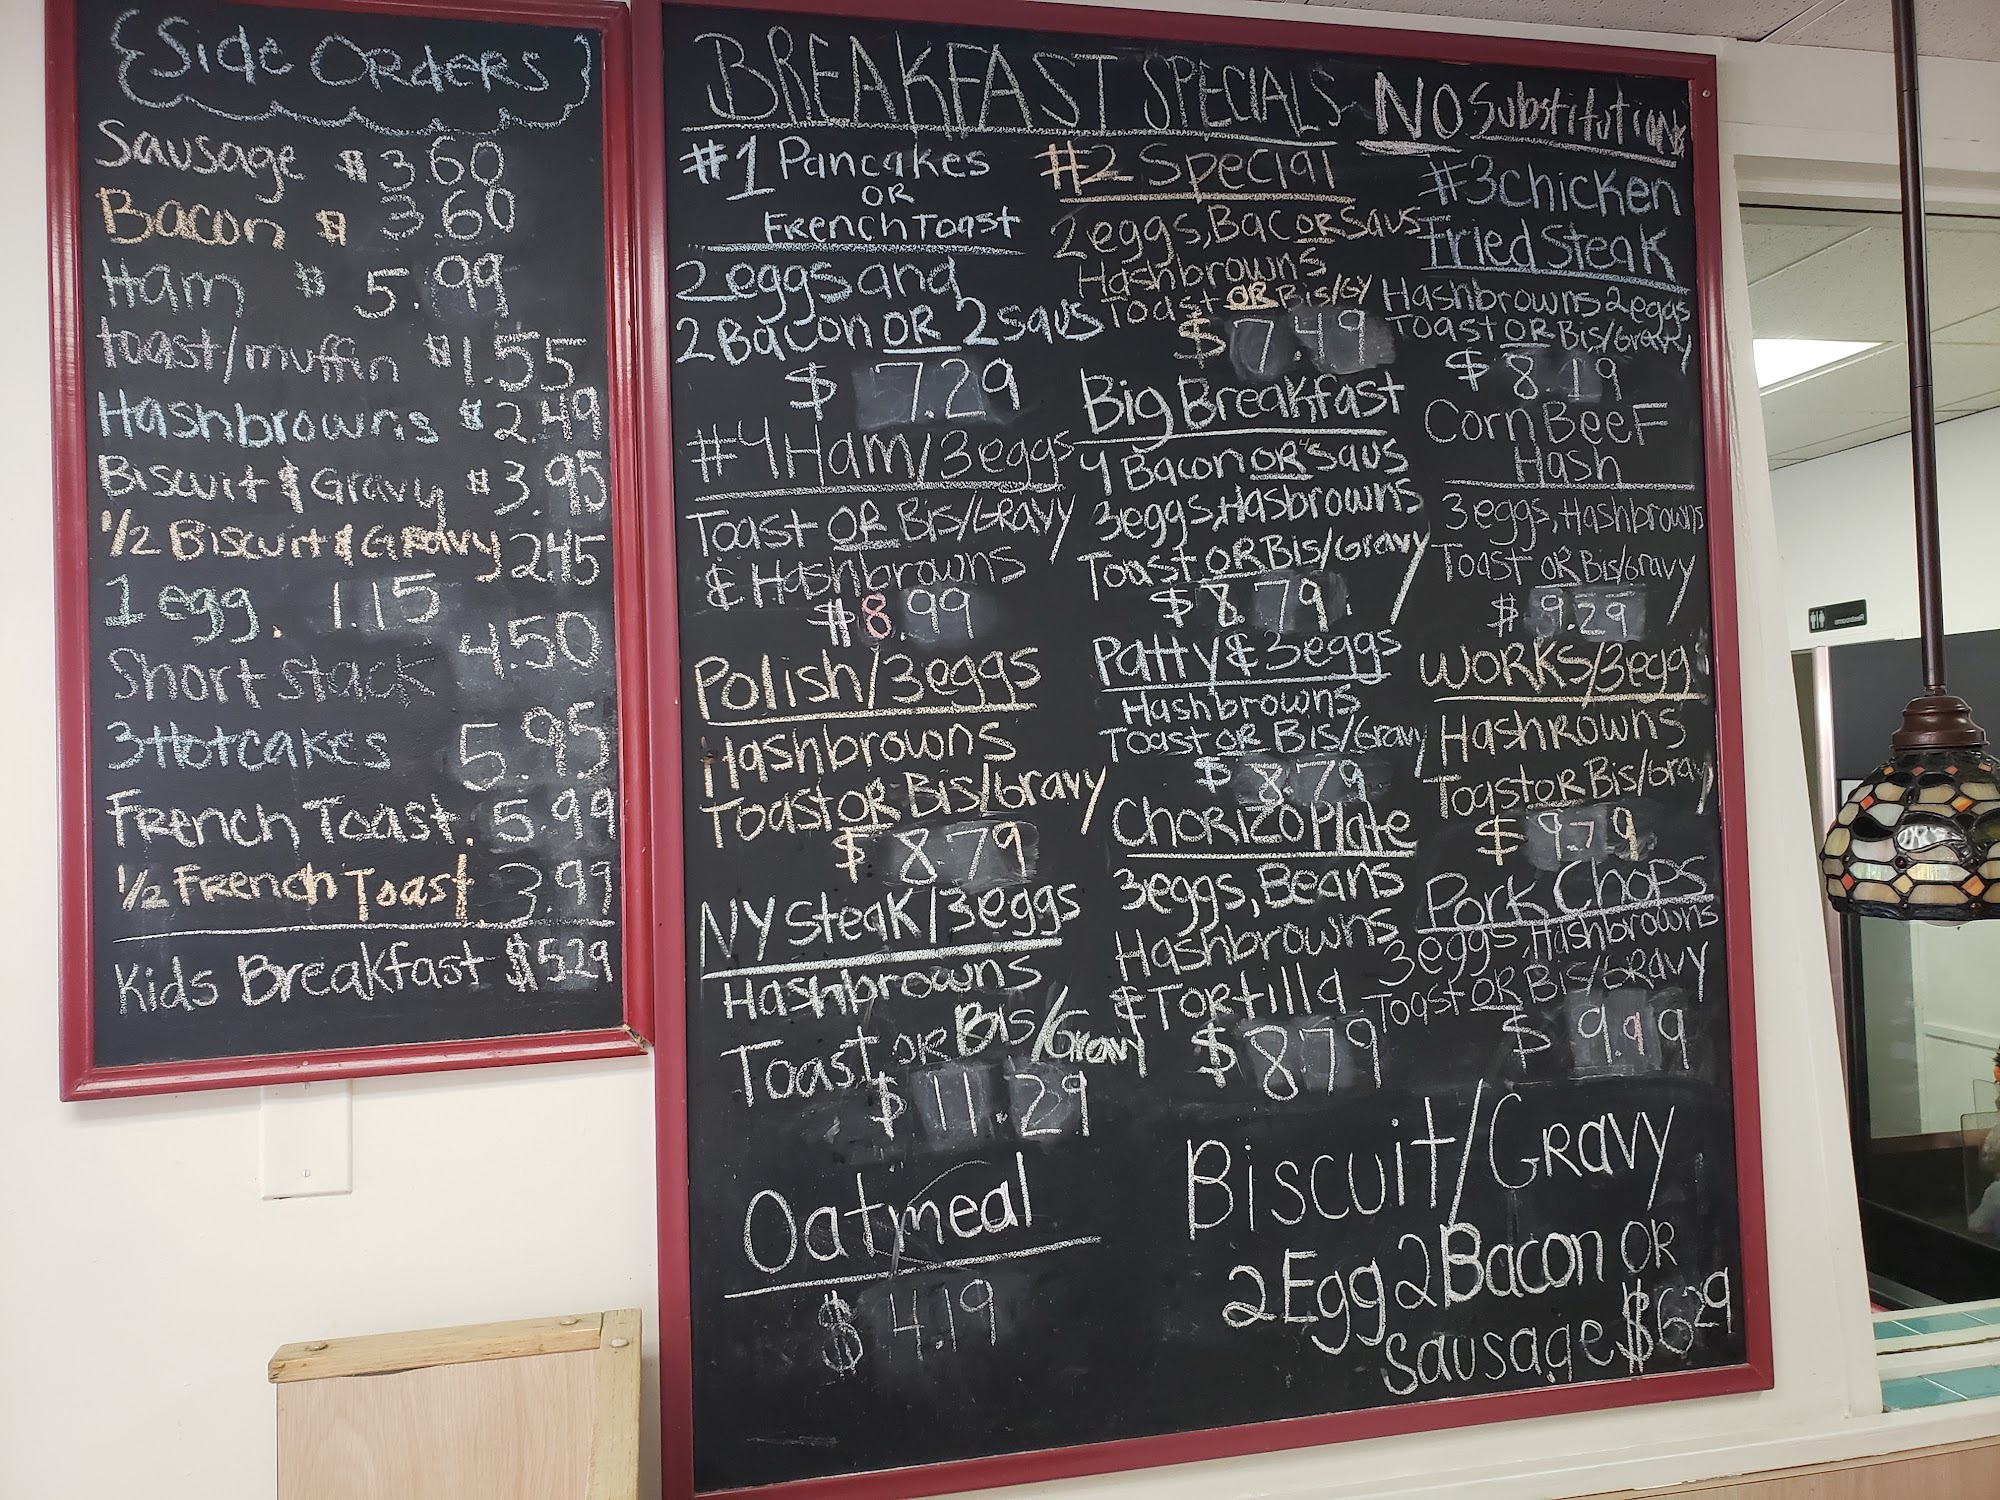 {Side Orders}
Sausage $3.60
Bacon $ 3.60
Ham $ 5.99
toast/muffin $1.55
Hashbrowns $2.49
Biscuit & Gravy $3.95
1/2 Biscuit & Gravy 2.45
1 egg. 1.15
Short stack 4.50
3 Hotcakes 5.95
French Toast. 5.99
1/2 French Toast. 3.99
Kids Breakfast $5.29
BREAKFAST SPECIALS NO Substitutions
#1 Pancakes
OR
French Toast
2 eggs and
2 Bacon OR 2 Saus
$ 7.29
#2 Special
2 eggs, Bac OR Saus
Hashbrowns
Toast OR Bis/Gy
$ 7.49
#3 chicken
fried Steak
Hashbrowns 2 eggs
Toast OR Bis/Gravy
$ 8.19
#4 Ham/3 eggs
Toast OR Bis/Gravy
& Hashbrowns
$8.99
Big Breakfast
4 Bacon OR 4 Saus
3 eggs, Hasbrowns
Toast OR Bis/Gravy
$ 8.79.
Corn Beef
Hash
3 eggs, Hashbrowns
Toast OR Bis/Gravy
$ 9.29
Polish/3 eggs
Hashbrowns
Toast OR Bis/Gravy
$ 8.79
Patty & 3 eggs
Hashbrowns
Toast OR Bis/Gravy
$ 8.79
WORKS/3 egg
HashRowns
Toast OR Bis/Gravy
$ 9.79
NY Steak/3 eggs
Hashbrowns
Toast OR Bis/Gravy
$ 11.29
Chorizo Plate
3 eggs, Beans
Hashbrowns
& Tortilla
$ 8.79
Pork Chops
3 eggs, Hashbrowns
Toast OR Bis/Gravy
$ 9.99
Oatmeal
$ 4.19
Biscuit/Gravy
2 Egg 2 Bacon OR
Sausage $6.29